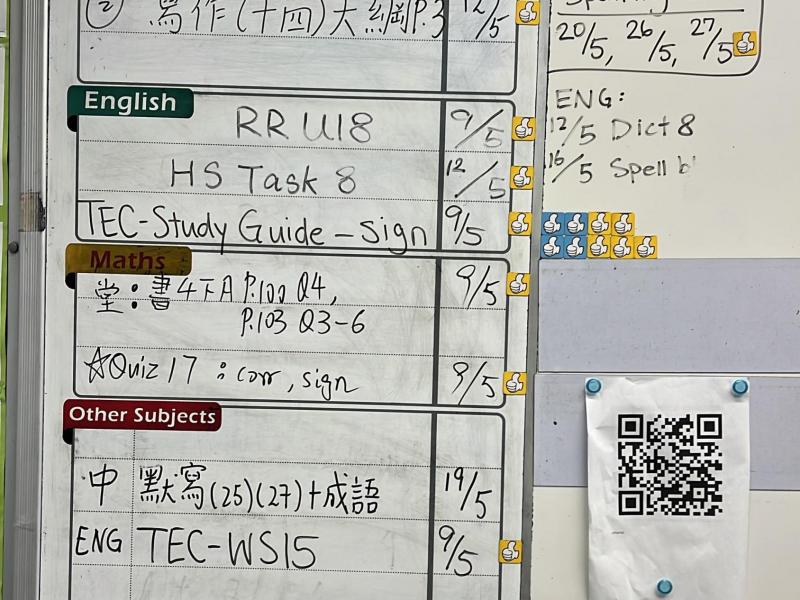 ② 寫作(十四)大綱P.3 12/5
English
RR U18 9/5
HS Task 8 12/5
TEC-Study Guide - sign 9/5
Maths
堂:書4下A P.100 Q4, 9/5
P.103 Q3-6
☆Quiz 17 : corr, sign 9/5
Other Subjects
中 默寫(25)(27)+成語 19/5
ENG TEC-WS15 9/5
20/5, 26/5, 27/5
ENG:
12/5 Dict 8
16/5 Spell